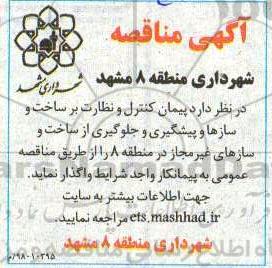 آگهی مناقصه
شهرداری مشهد
شهرداری منطقه ۸ مشهد
در نظر دارد پیمان کنترل و نظارت بر ساخت و
سازها و پیشگیری و جلوگیری از ساخت و
سازهای غیرمجاز در منطقه ۸ را از طریق مناقصه
عمومی به پیمانکار واجد شرایط واگذار نماید.
جهت اطلاعات بیشتر به سایت
ets.mashhad.ir مراجعه نمایید.
شهرداری منطقه ۸ مشهد
۹۸۰۱۰۳۹۵/